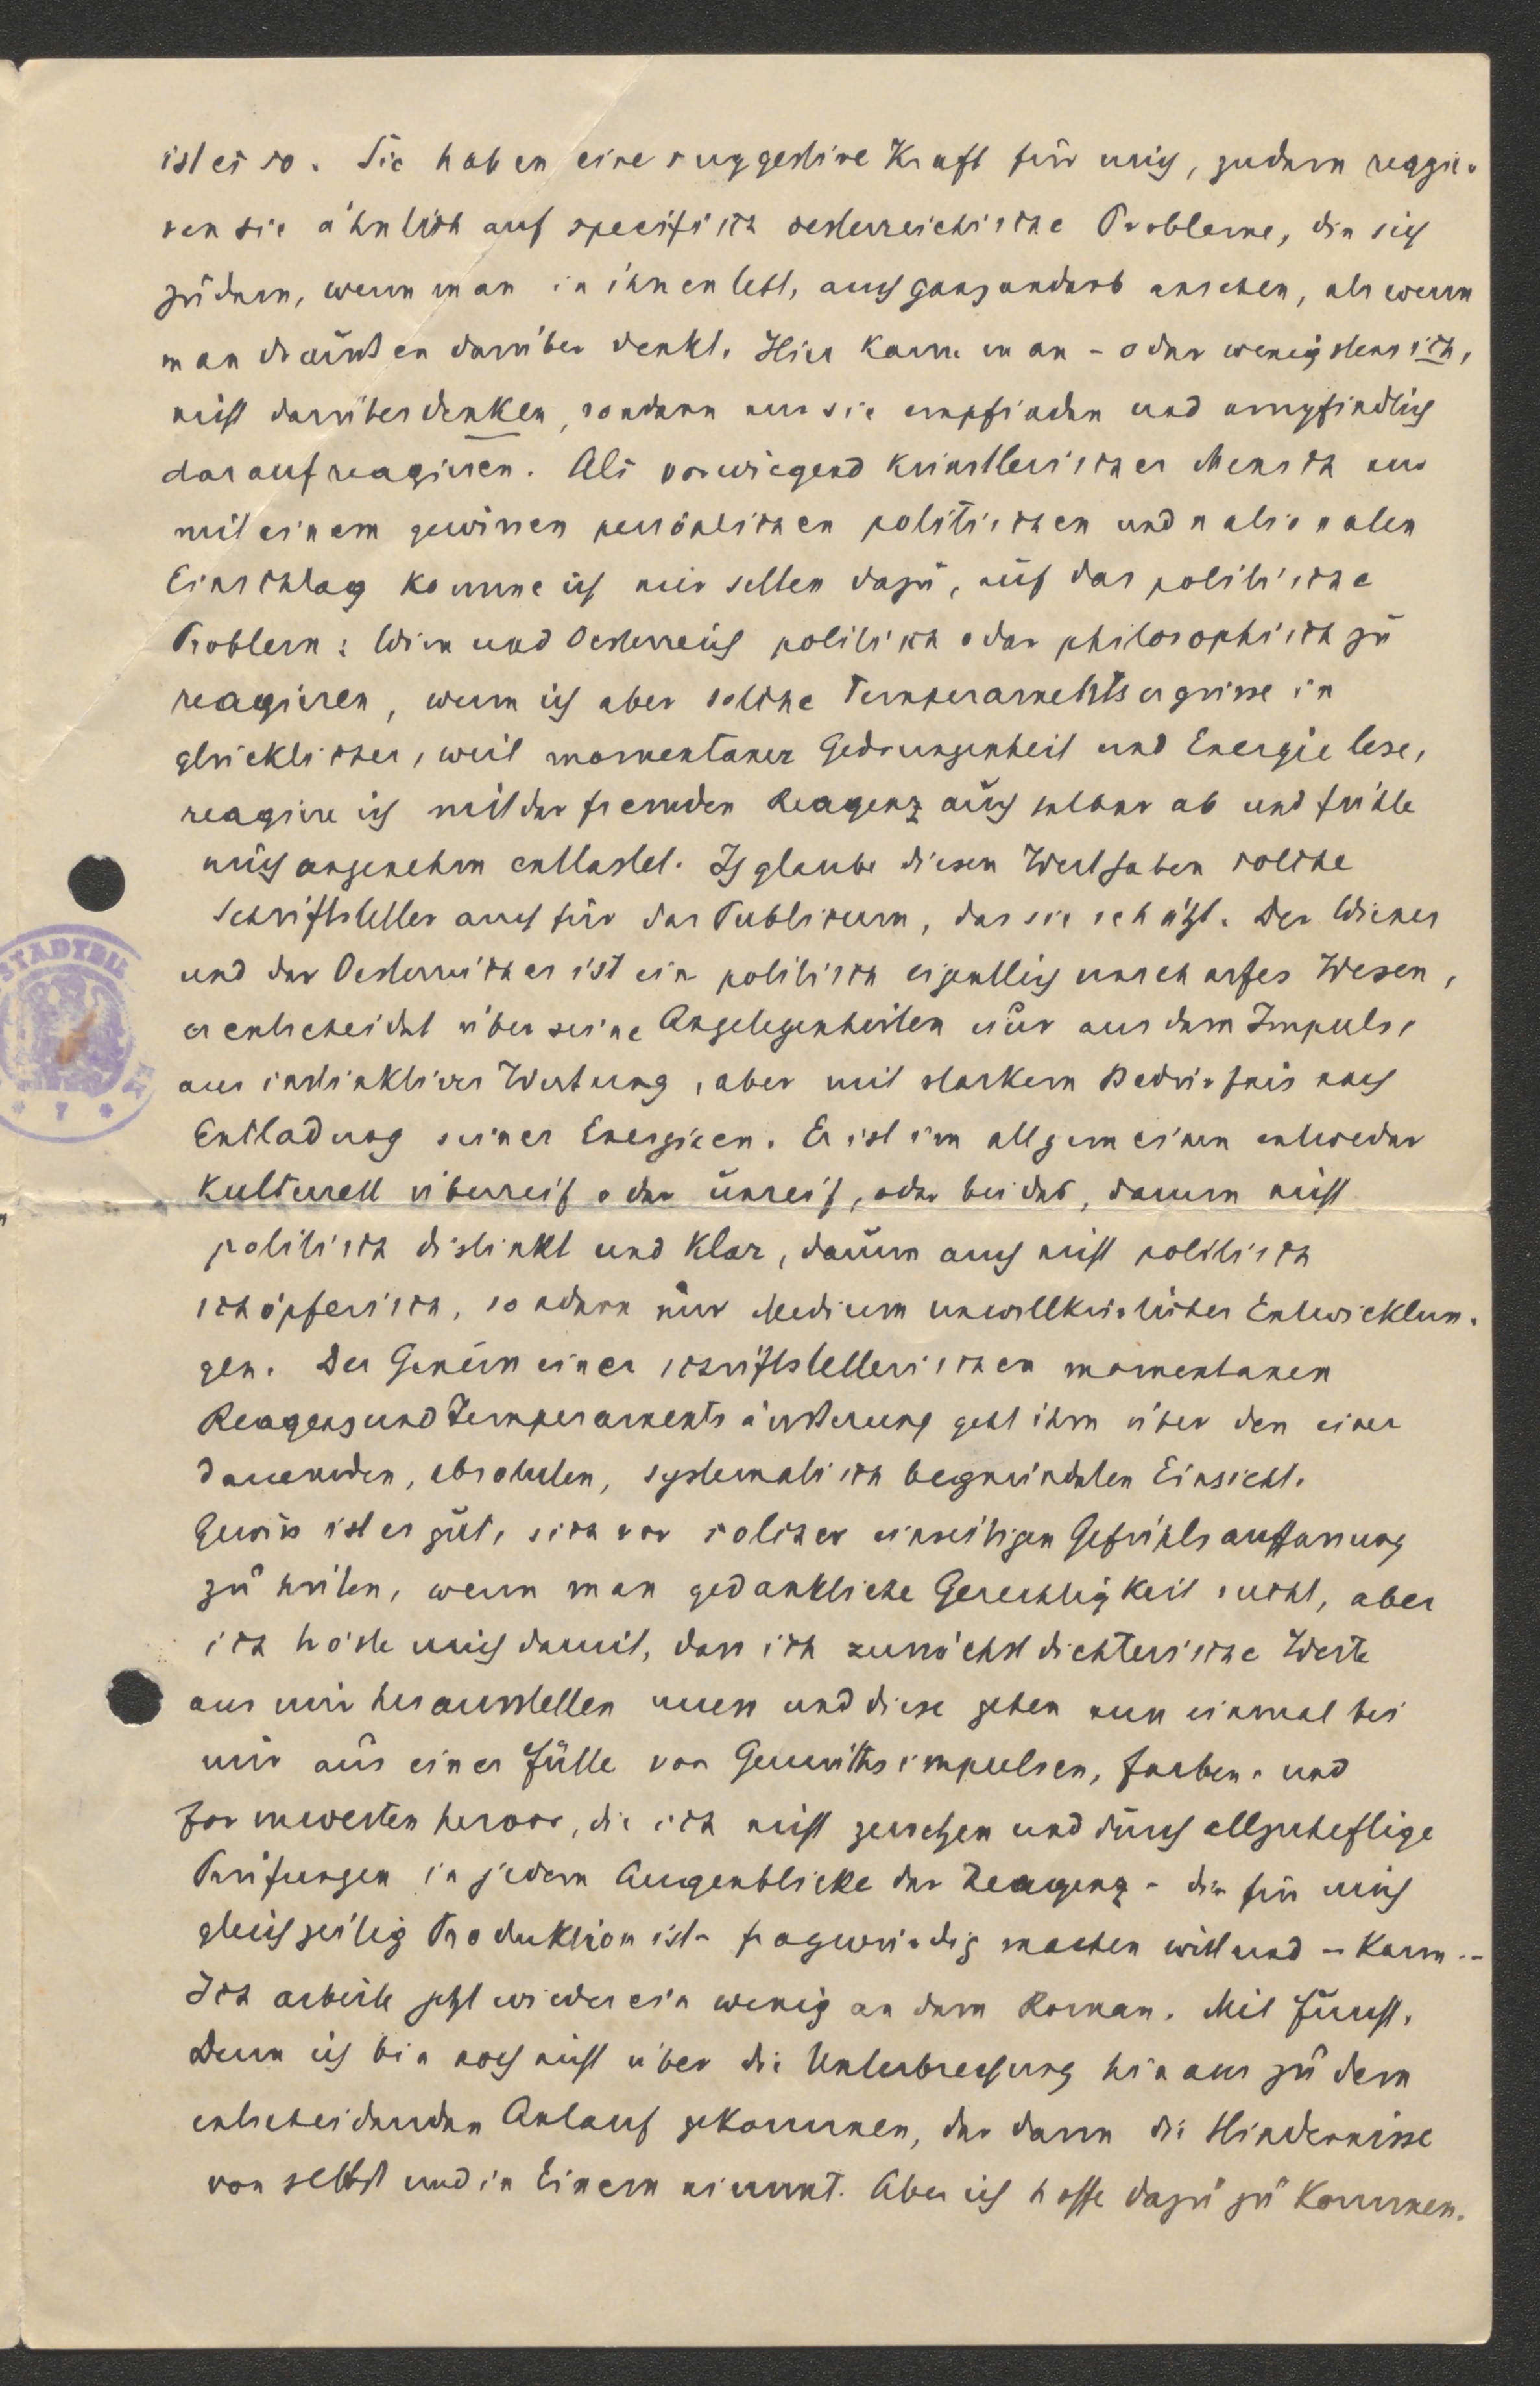 ist es so. Sie haben eine suggestive Kraft für mich, zudem reagie-
ren sie ähnlich auf specifisch oesterreichische Probleme, die sich
zudem, wenn man in ihnen lebt, auch ganz anders ansehen, als wenn
man draußen darüber denkt. Hier kann man - oder wenigstens ich,
nicht darüber denken, sondern nur sie empfinden und empfindlich
darauf reagieren. Als vorwiegend künstlerischer Mensch nur
mit einem gewissen persönlichen politischen und nationalen
Einschlag komme ich nur selten dazu, auf das politische
Problem: Wien und Oesterreich politisch oder philosophisch zu
reagieren, wenn ich aber solche Temperamentsergüsse in
glücklicher, weil momentaner Gedrungenheit und Energie lese,
reagire ich mit der fremden Reagenz auch selber ab und fühle
mich angenehm entlastet. Ich glaube diesen Wert haben solche
Schriftsteller auch für das Publicum, das sie schätzt. Der Wiener
und der Oesterreicher ist ein politisch eigentlich unscharfes Wesen,
er entscheidet über seine Angelegenheiten nur aus dem Impuls,
aus instinktiver Wertung, aber mit starkem Bedürfnis nach
Entladung seiner Energieen. Er ist im allgemeinen entweder
kulturell überreif oder unreif, oder beides, darum nicht
politisch distinkt und klar, darum auch nicht politisch
schöpferisch, sondern nur Medium unwillkürlicher Entwicklun-
gen. Der Genuss einer schriftstellerischen momentanen
Reagenz und Temperamentsäußerung geht ihm über den einer
dauernden, absoluten, systematisch begründeten Einsicht.
Gewiss ist es gut, sich vor solcher einseitigen Gefühlsauffassung
zu hüten, wenn man gedankliche Gerechtigkeit sucht, aber
ich tröste mich damit, dass ich zunächst dichterische Werte
aus mir herausstellen muss und diese gehen nun einmal bei
mir aus einer Fülle von Gemüthsimpulsen, Farben- und
Formwerten hervor, die ich nicht zersetzen und durch allzuheftige
Prüfungen in jedem Augenblicke der Reagenz - die für mich
gleichzeitig Produktion ist - fragwürdig machen will und - kann. -
Ich arbeite jetzt wieder ein wenig an dem Roman. Mit Furcht,
Denn ich bin noch nicht über die Unterbrechung hinaus zu dem
entscheidenden Anlauf gekommen, der dann die Hindernisse
von selbst und in Einem nimmt. Aber ich hoffe dazu zu kommen.